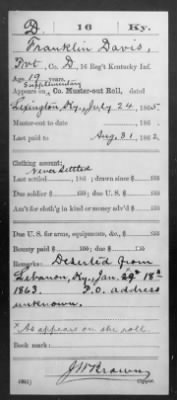 D. 16 Ky.
Franklin Davis,
Pvt., Co. D, 16 Reg't Kentucky Inf.
Age 19 years.
Supplementary
Appears on Co. Muster-out Roll, dated
Lexington, Ky., July 24, 1865
Muster-out to date , 186 .
Last paid to Aug. 31, 1862
Clothing account:
Never Settled
Last settled , 186 ; drawn since $ 100
Due soldier $ 100; due U. S. $ 100
Am't for cloth'g in kind or money adv'd $ 100
Due U. S. for arms, equipments, &c., $ 100
Bounty paid $ 100; due $ 100
Remarks: Deserted from
Lebanon, Ky., Jan. 29th 18th
1863. P.O. address
unknown.
*As appears on the roll
Book mark:
J W Brown
Copyist.